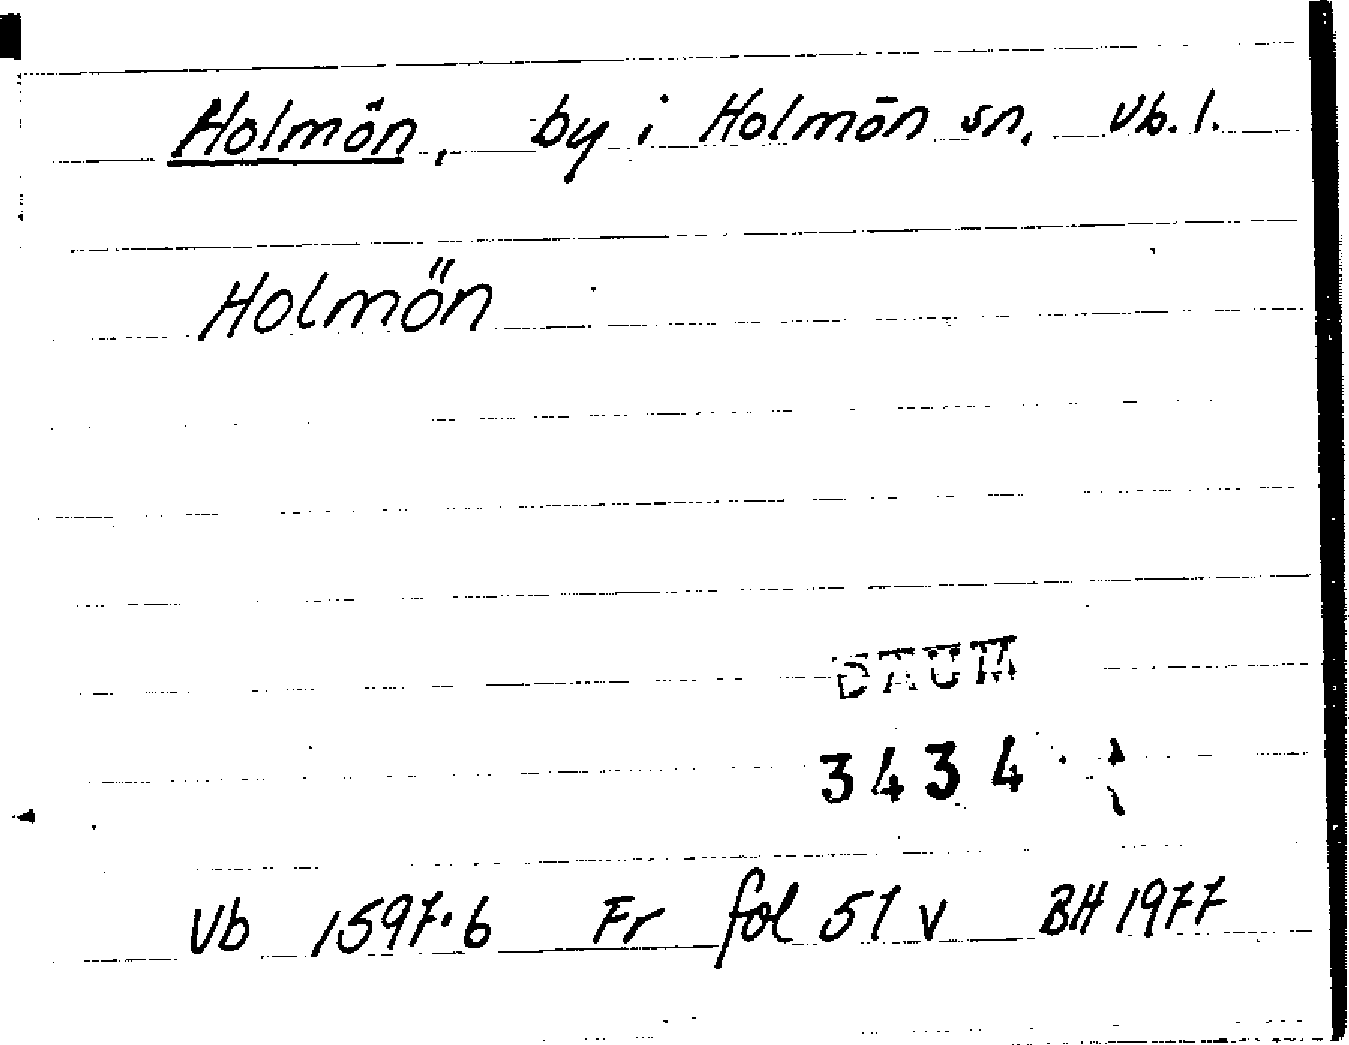 Holmön, by i Holmön sn, Vb. l.
Holmőn
DAUM
3434
Vb 1597:6 Fr fol 51 v BH 1977